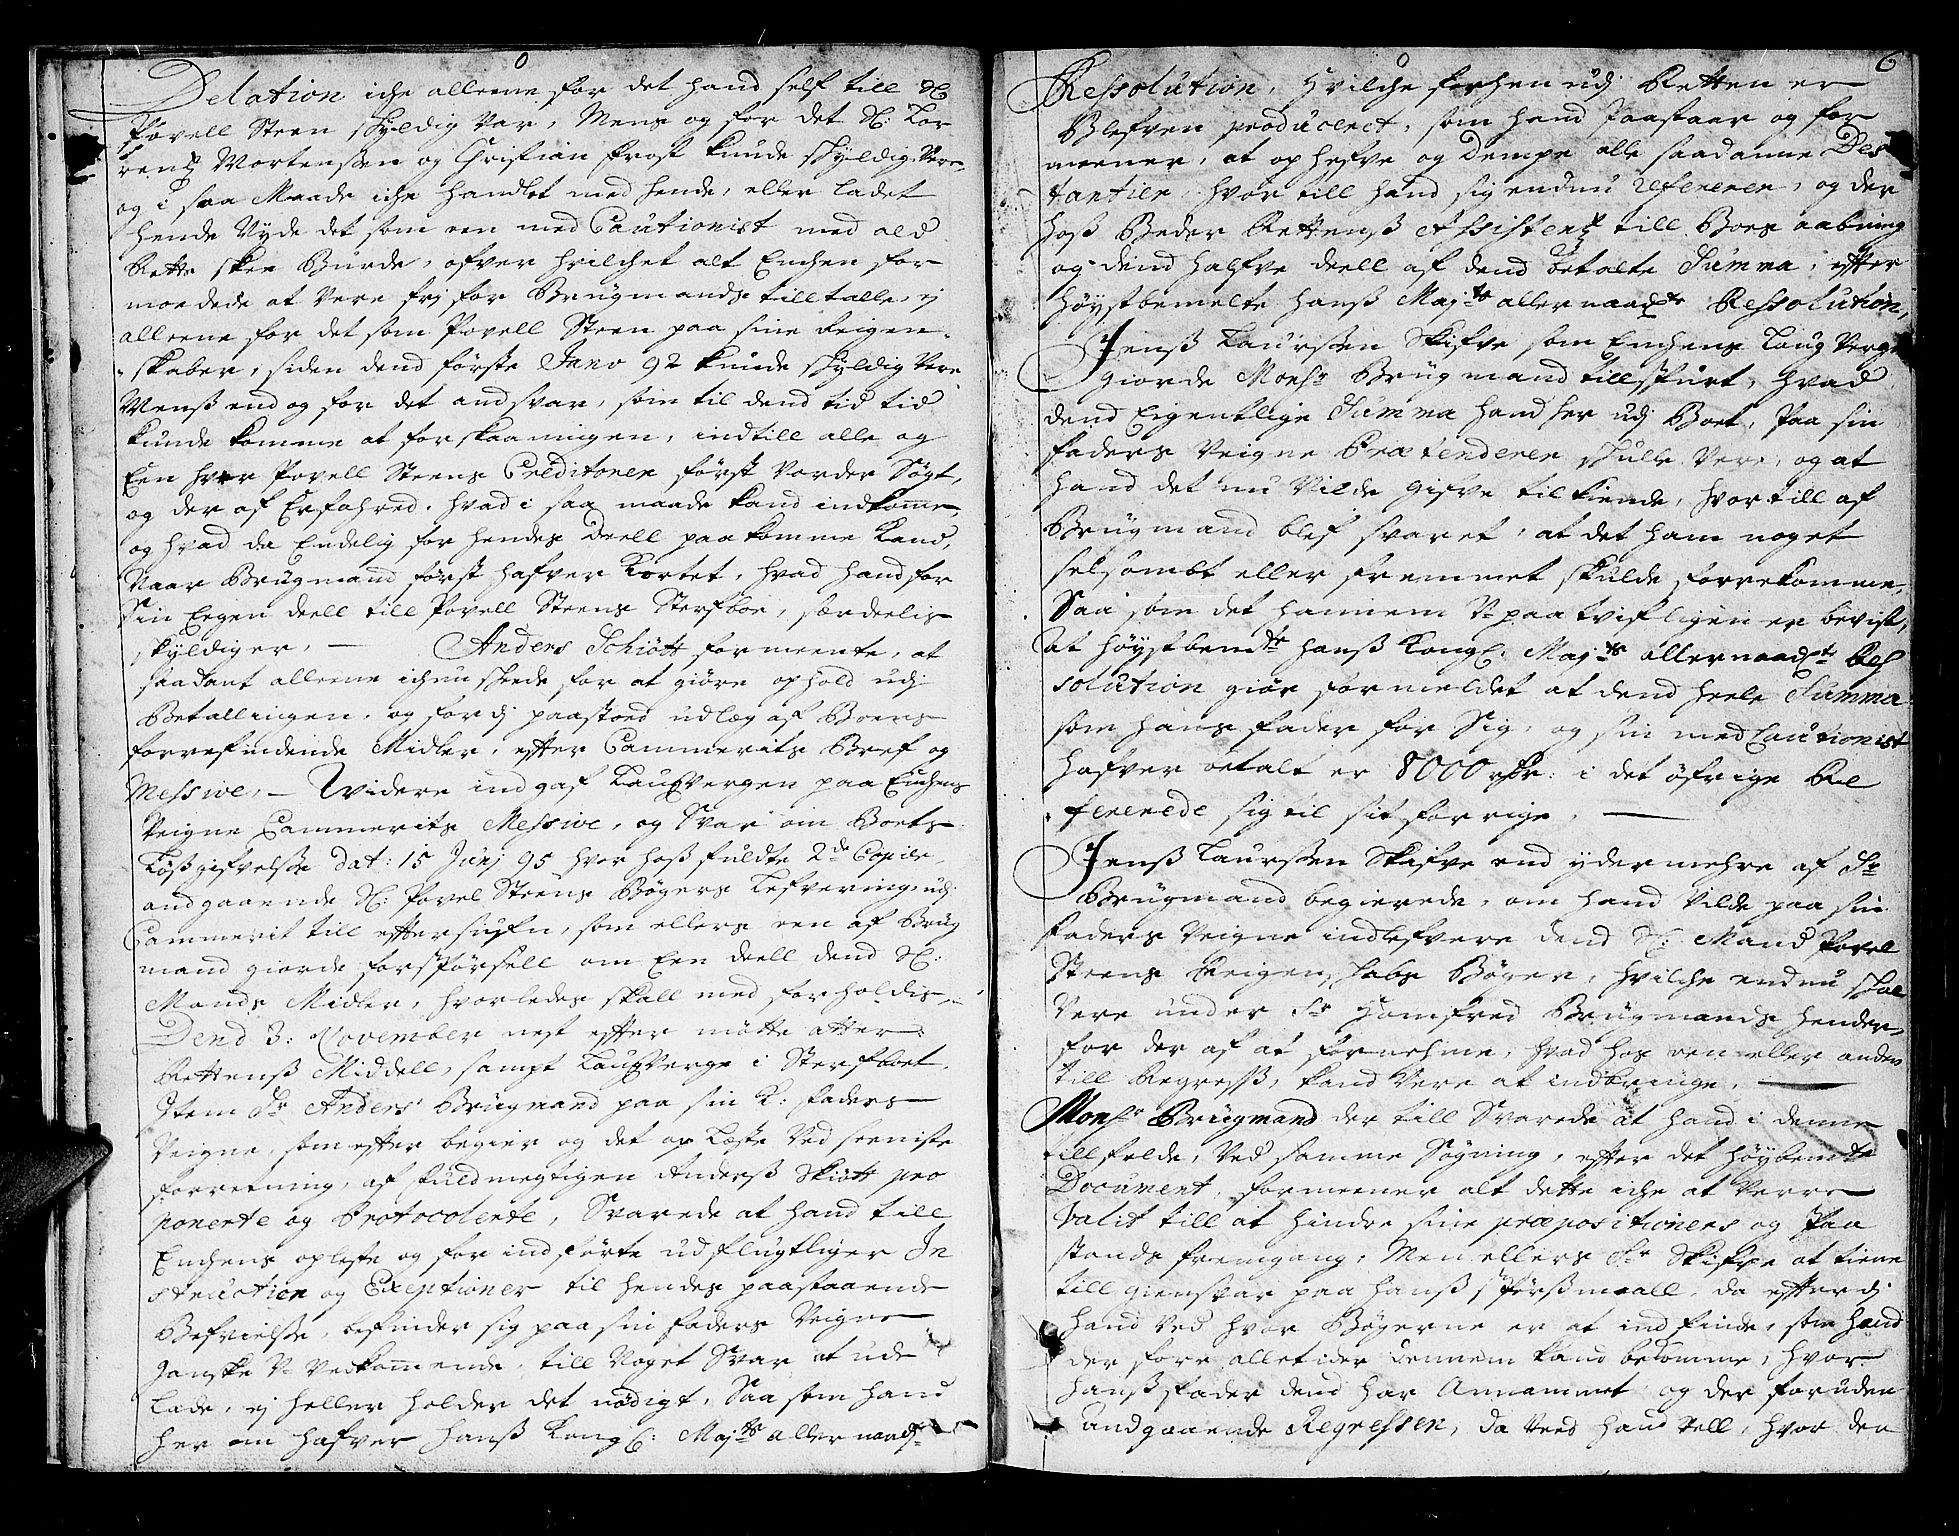 Delation iche alleene for det hand self till Sl:
Povell Steen schyldig var, Mens og for det Sl: Lor
rentz Mortensen og Christian frost kunde schyldig Vere,
og i saa Maade iche handlet med hende, eller ladet
hende Vyde det som een med Cautionist med all
Rette skee Burde, ofver hvilchet alt Enchen for
moedede at Vere frj for Brügmands tilltalle, ej
alleene for det som Povell Steen paa sine Reigen-
skaber, siden dend første Jano 92 kunde schyldig Vere
Menss end og for det andsvar, som til dend tid
kunde komme at forskaaningen, indtill alle og
Een hver Povell Steens Creditoner først Vorder Søgt,
og der af Erfahred, hvad i saa maade kand indkomme,
og hvad da Endelig for hendes Deell paakomme kand,
Naar Brügmand først hafver Kortet, hvad hand for
Sin Egen deell till Povell Steens Sterfboe, særdeelis
skyldiger, — Anders Schiøtt formeente, at
saadant alleene ichun skeede for at giøre ophold udj
Betallingen, og fordj paastoed udlæg af Boens
forrefindende Midler, efter Cammerits Bref og
Messive, — Widere indgaf Laugvergen paa Enchens
Veigne Cammerits Messive, og Svar om Boets
Løssgifvelsse dat: 15 Junj 95 hver hoss fuldte 2de Copier
andgaaende Sl: Povel Steens Bøgers Lefvering, udj
Cammerit till eftersiufn, som ellers een af Brüg
mand giorde forspørsell om Een deell dend Sl:
Mands Midler, hvorledes skall med forholdis,
Dend 3: November nest efter møtte atter
Rettenss Middell, sampt Laugverge i Sterfboet,
Item Sr Anders Brügmand paa sin K: faders
Veigne, som efter begier og det op Læste Ved seeniste
forretning, af fuldmegtigen Anderss Skiøtt pro
ponerte og Protocolerte, Svarede at hand till
Enchens opleste og for indførte udflugtliger In
struction og Exeptioner til hendes paastaaende
Befrielsse, befinder sig paa sin faders Veigne
gandske V-vedkommende, till Noget Svar at ude
Lade, ej heller holder det nødigt, Saa som hand
her om hafver hanss Kongl: Majts allernaadste
6
Ressolution, Hvilche forhen udj Retten er
Blefven producerct, som hand paastaar og for
meener, at ophefve og Dempe alle saadanne Des
tantier, hvor till hand sig endnu refererer, og der
hoss Beder Rettenss Assistentz till Boes aabning
og dend halfve deell af dend betalte Summa, efter
høystbemelte hanss Majts allernaadste Ressolution,
Jenss Laurssen Skifve som Enchens Laug Verge
giorde Monsr Brügmand tillspurt, hvad
dend Egentlige Summa hand her udj Boet, Paa sin
faders Veigne Prætenderer skulle Vere, og at
hand det nu Vilde gifve tilkiende, hvor till af
Brügmand blef svaret, at det ham noget
selsombt eller fremmet skulde forrekomme,
Saa som det hannem V-paatvifligen er bevist,
at høystbemte hanss Kongl: Majts allernaadste Res
solution giør formeldet at dend heele Summa
som hans fader for Sig, og sin med Cautionist
hafver betalt er 8000 rdr: i det øfrige Re
fererede sig til sit forrige, —
Jenss Laurssen Skifve end ydermehre af Sr
Brügmand begierede, om hand Vilde paa sin
faders Veigne indlefvere dend Sl: Mand Povel
Steens Reigenschabs Bøger, hvilche endnu skal
Vere under Sr Homfred Brügmands hender,
for der af at fornehme, hvad hos een eller anden
till Regress, kand Vere at indbringe, —
Monsr Brügmand der till Svarede at hand i denne
tillfelde, Ved samme Søgning, efter det høybemte
Document, formeener alt dette iche at Verre
Valit till at hindre sine præpositioners og Paa
stands fremgang, Men ellers Sr Skifve at tiene
till giensvar paa hanss spørssmaall, da efterdj
hand Ved hvor Bøgerne er at indfinde, som hand
der fore alletider dennem kand bekomme, hvor
hanss fader dend har Annammet og der foruden
andgaaende Regressen, da Veed hand Vell, hvor den